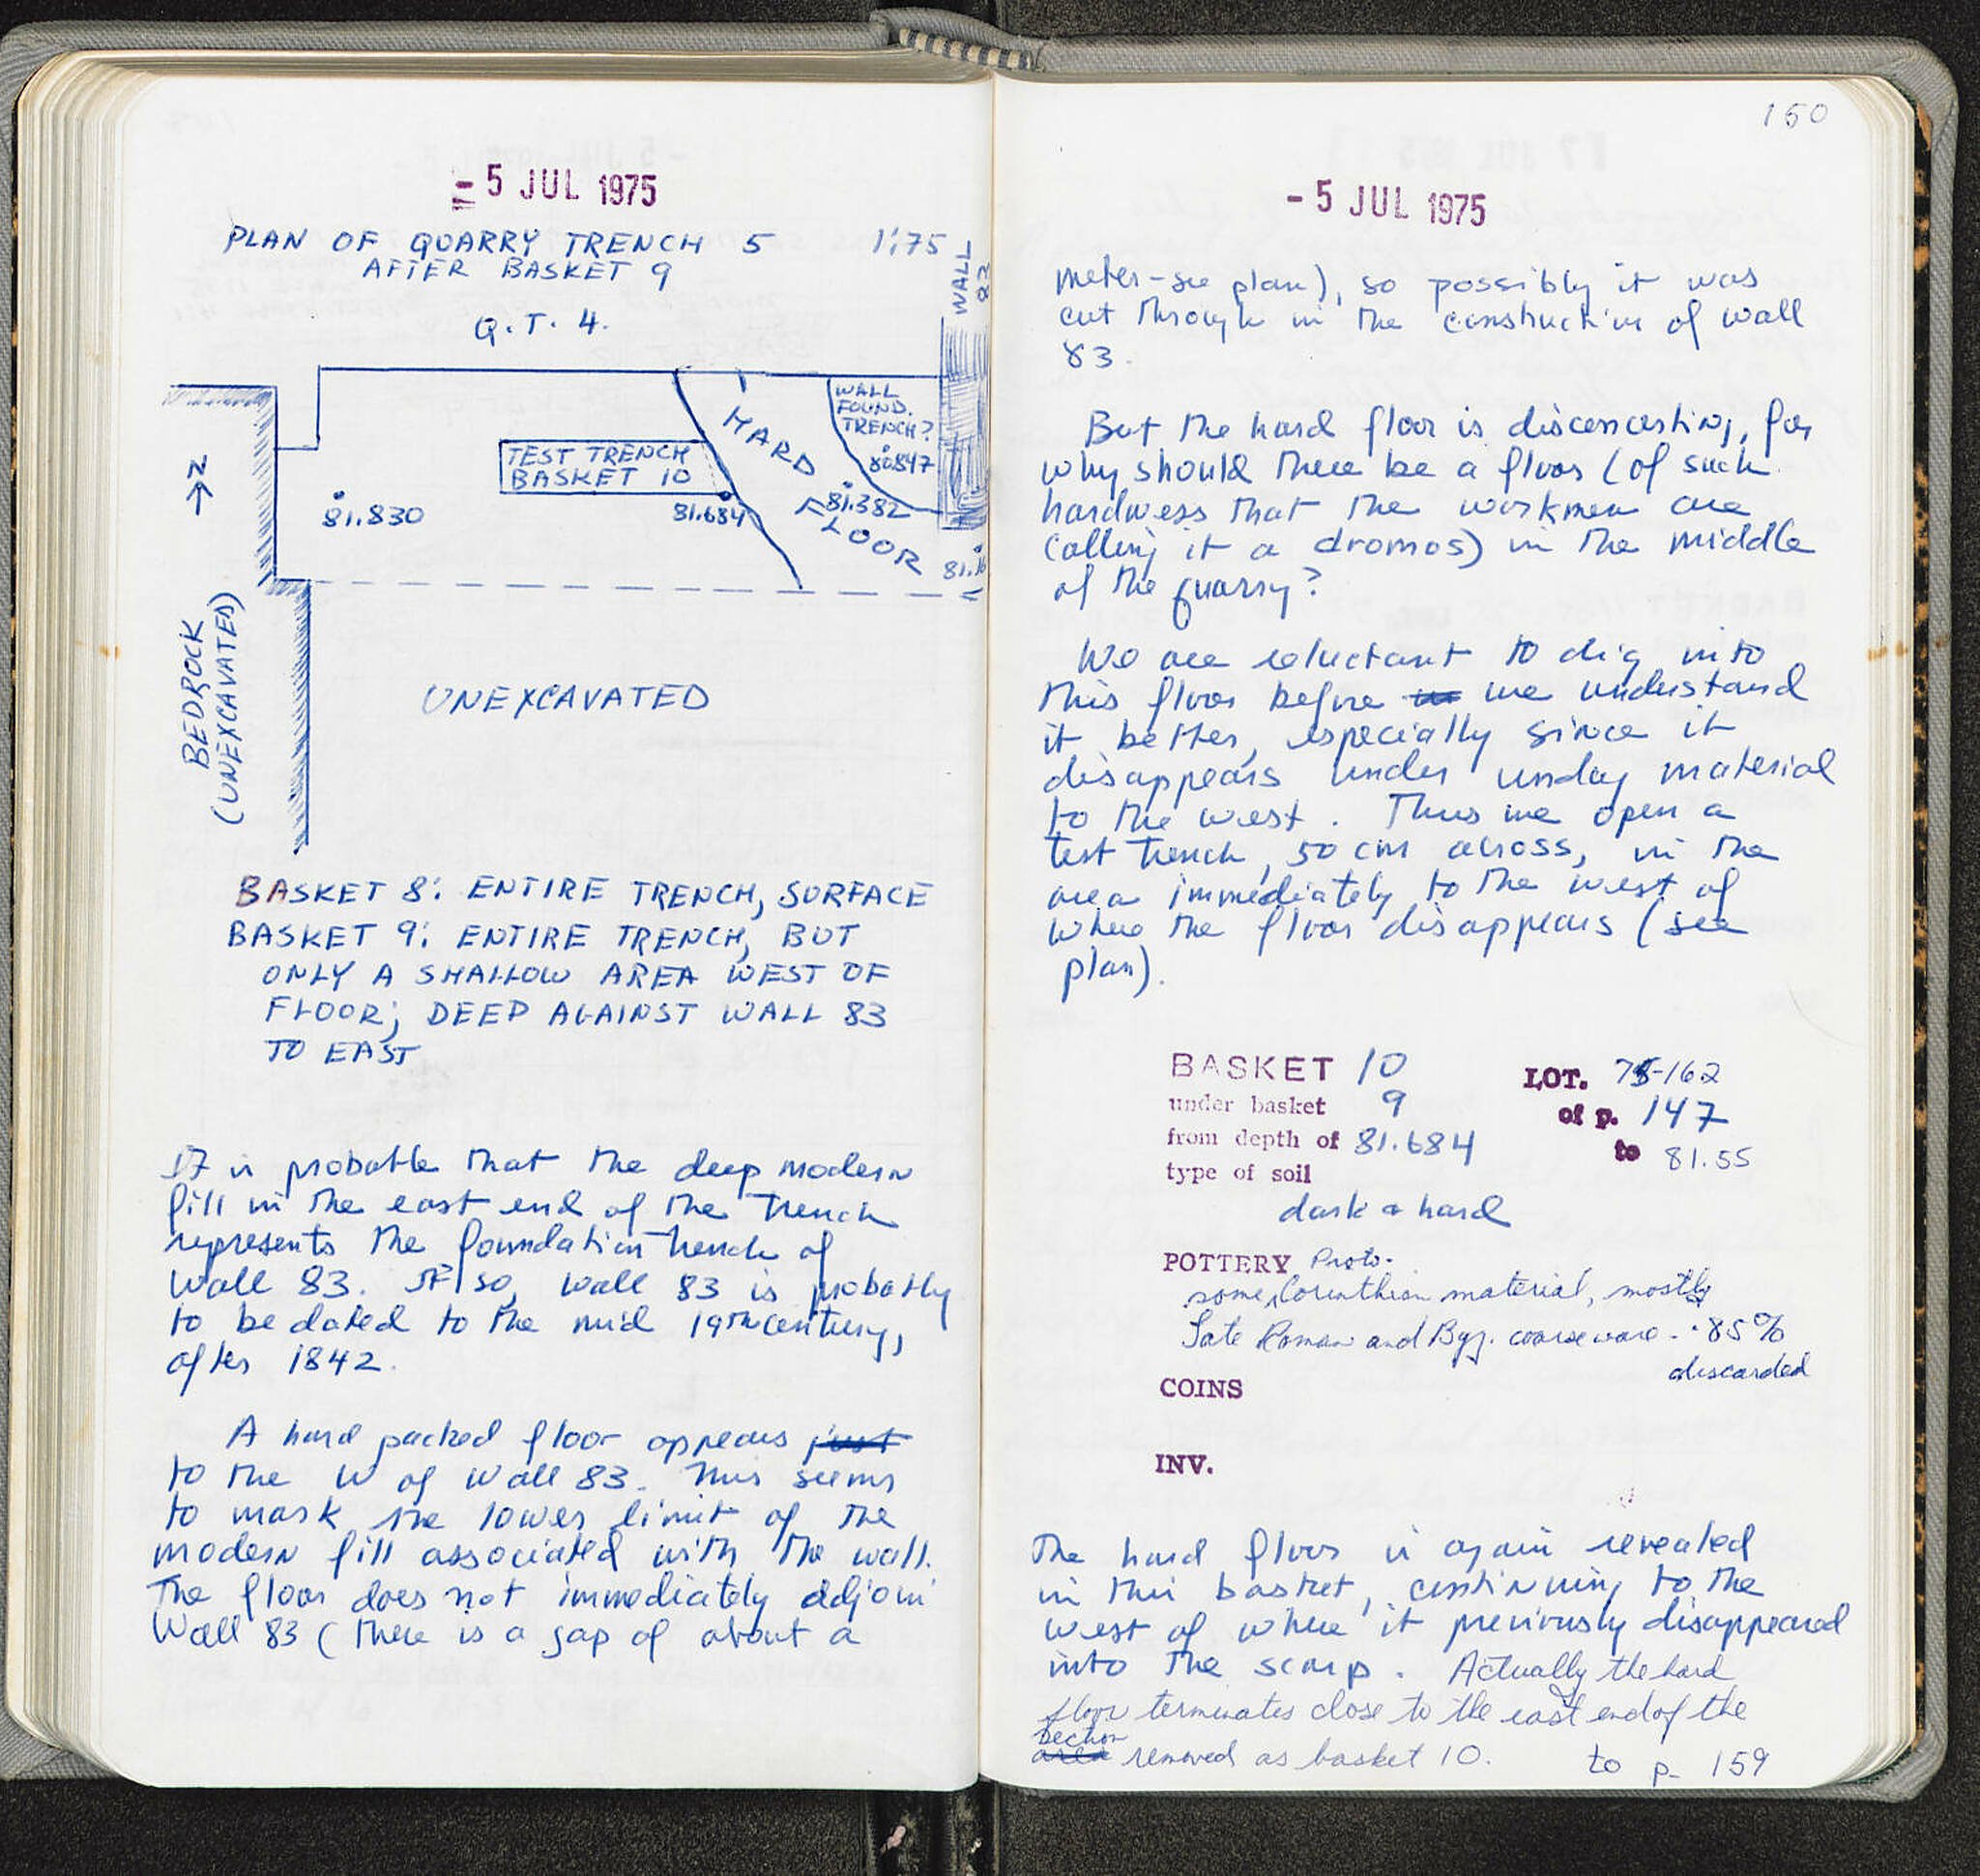 - 5 JUL 1975
PLAN OF QUARRY TRENCH 5 1:75
AFTER BASKET 9
WALL 83
Q.T. 4.
WALL
FOUND.
TRENCH?
80.847
HARD FLOOR
TEST TRENCH
BASKET 10
N
81.830
81.684
81.382
81.
BEDROCK
(UNEXCAVATED)
UNEXCAVATED
BASKET 8: ENTIRE TRENCH, SURFACE
BASKET 9: ENTIRE TRENCH, BUT
ONLY A SHALLOW AREA WEST OF
FLOOR; DEEP AGAINST WALL 83
TO EAST
It is probable that the deep modern
fill in the east end of the trench
represents the foundation trench of
Wall 83. If so, wall 83 is probably
to be dated to the mid 19th century,
after 1842.
A hard packed floor appears just
to the W of Wall 83. This seems
to mark the lower limit of the
modern fill associated with the wall.
The floor does not immediately adjoin
Wall 83 (there is a gap of about a
150
- 5 JUL 1975
meter - see plan), so possibly it was
cut through in the construction of wall
83.
But the hard floor is disconcerting, for
why should there be a floor (of such
hardness that the workmen are
calling it a dromos) in the middle
of the quarry?
We are reluctant to dig into
this floor before we we understand
it better, especially since it
disappears under undug material
to the west. Thus we open a
test trench, 50 cm across, in the
area immediately to the west of
where the floor disappears (see
plan).
BASKET 10 LOT. 75-162
under basket 9 of p. 147
from depth of 81.684 to 81.55
type of soil
dark & hard
POTTERY Proto-
some Corinthian material, mostly
Late Roman and Byz. coarse ware - 85%
discarded
COINS
INV.
The hard floor is again revealed
in this basket, continuing to the
west of where it previously disappeared
into the scarp. Actually the hard
floor terminates close to the east end of the
section
area removed as basket 10. to p. 159